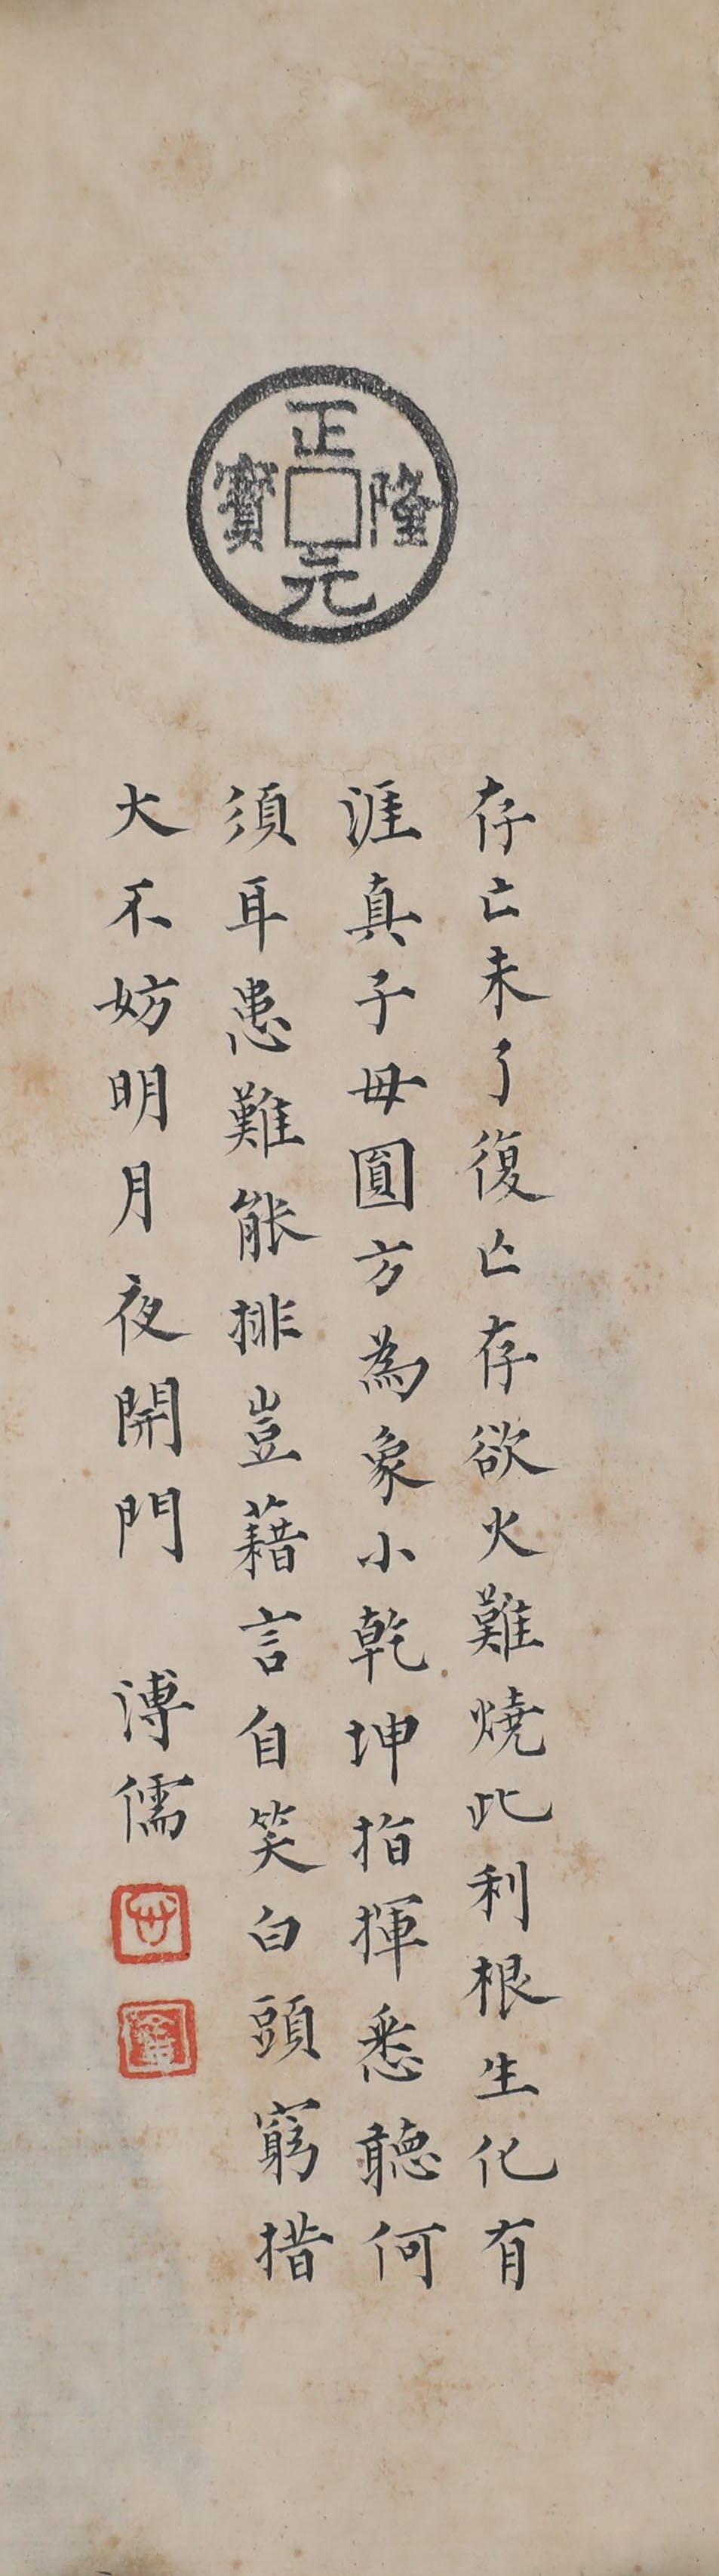 正隆元寶
存亡未了復亡存欲火難燒此利根生化有
涯真子母圓方為象小乾坤指揮悉聽何
須耳患難能排豈藉言自笑白頭窮措
大不妨明月夜開門
溥儒